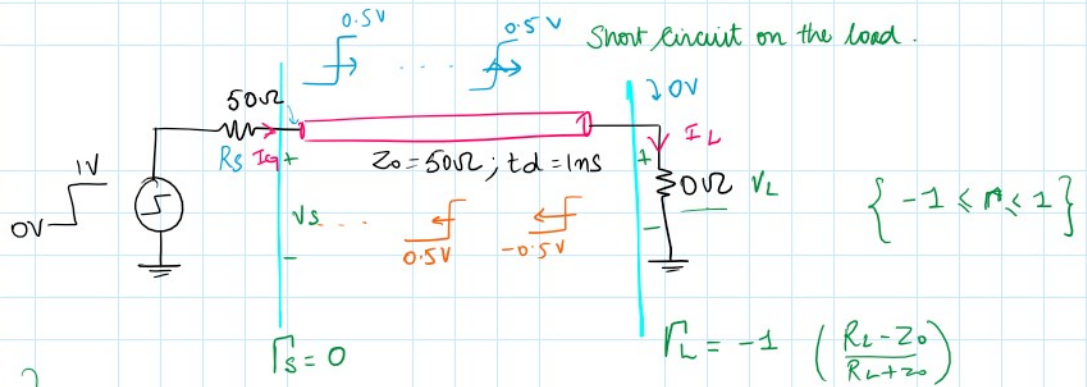 0.5V
0.5V
Short circuit on the load.
50Ω
0V
Rs
Ig
+
Z₀ = 50Ω ; td = 1ns
IL
+
0Ω
VL
{ -1 ≤ Γ ≤ 1 }
1V
0V
Vs
....
0.5V
-0.5V
-
-
Γs = 0
ΓL = -1 ( RL - Z₀ / RL + Z₀ )